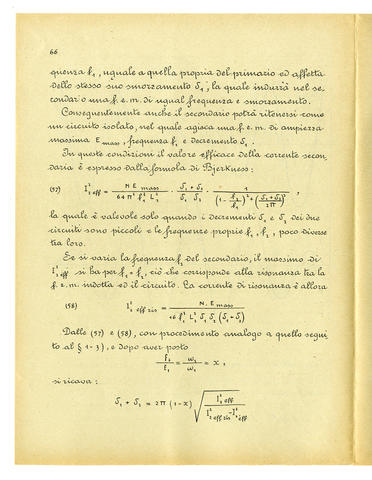 66
quenza f₁, uguale a quella propria del primario ed affetta
dello stesso suo smorzamento δ₁; la quale indurrà nel se-
condario una f.e.m. di ugual frequenza e smorzamento.
Conseguentemente anche il secondario potrà ritenersi come
un circuito isolato, nel quale agisca una f.e.m. di ampiezza
massima E mass, frequenza f₁ e decremento δ₁.
In queste condizioni il valore efficace della corrente secon
daria è espresso dalla formola di Bjerkness:
(57) I²₂ eff = N E mass / 64 π² f₁³ L²₂ · δ₁ + δ₂ / δ₁ · δ₂ · 1 / (1 - f₂/f₁)² + (δ₁+δ₂/2π)² ,
la quale è valevole solo quando i decrementi δ₁ e δ₂ dei due
circuiti sono piccoli e le frequenze proprie f₁, f₂, poco diverse
tra loro.
Se si varia la frequenza f₂ del secondario, il massimo di
I²₂ eff si ha per f₁ = f₂, ciò che corrisponde alla risonanza tra la
f.e.m. indotta ed il circuito. La corrente di risonanza è allora
(58) I²₂ eff ris = N. E mass / 16 f₁³ L²₂ δ₁ δ₂ (δ₁ + δ₂)
Dalle (57) e (58), con procedimento analogo a quello segui
to al § 1-3), e dopo aver posto
f₂/f₁ = ω₂/ω₁ = x ,
si ricava:
δ₁ + δ₂ = 2π (1-x) √ I²₂ eff / I²₂ eff ris - I²₂ eff